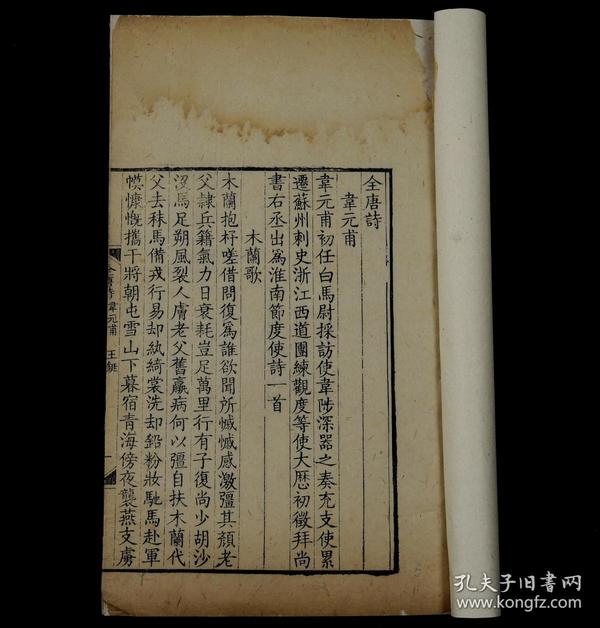 全唐詩
韋元甫
韋元甫初任白馬尉採訪使韋陟深器之奏充支使累
遷蘇州刺史浙江西道團練觀度等使大歷初徵拜尚
書右丞出爲淮南節度使詩一首
木蘭歌
木蘭抱杼嗟借問復爲誰欲聞所慽慽感激彊其顏老
父隸兵籍氣力日衰耗豈足萬里行有子復尚少胡沙
沒馬足朔風裂人膚老父舊羸病何以彊自扶木蘭代
父去秣馬備戎行易却紈綺裳洗却鉛粉妝馳馬赴軍
幙慷慨攜干將朝屯雪山下暮宿青海傍夜襲燕支虜
全唐詩韋元甫 王
孔夫子旧书网
www.kongfz.com